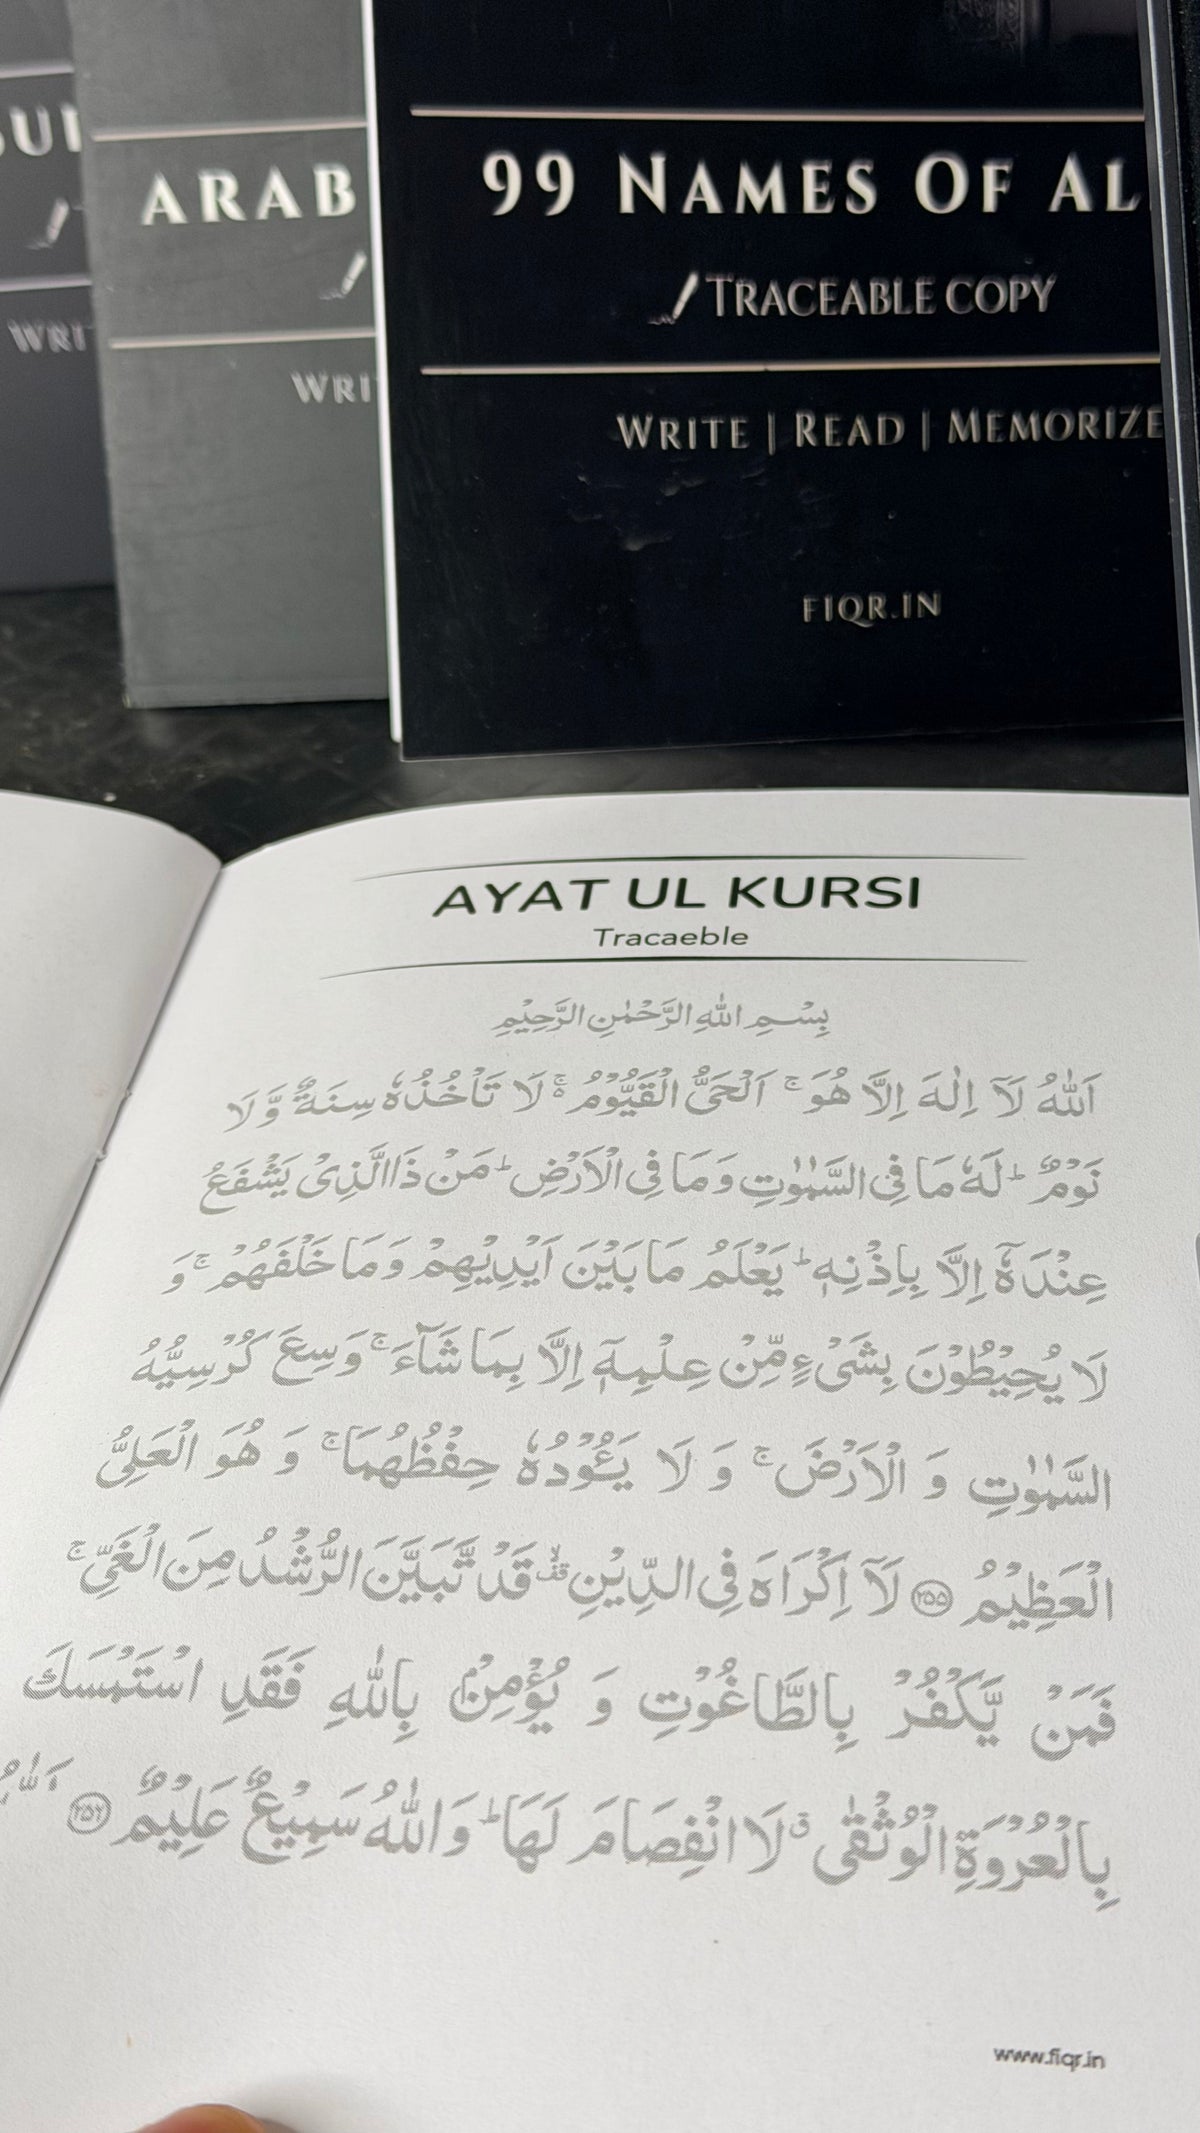 BUI
WRI
ARAB
WRI
99 NAMES OF AL
TRACEABLE COPY
WRITE | READ | MEMORIZE
FIQR.IN
AYAT UL KURSI
Tracaeble
بِسْمِ اللهِ الرَّحْمٰنِ الرَّحِيْمِ
اَللهُ لَآ اِلٰهَ اِلَّا هُوَ ۚ اَلْحَىُّ الْقَيُّوْمُ ۚ لَا تَاْخُذُهٗ سِنَةٌ وَّلَا
نَوْمٌ ؕ لَهٗ مَا فِى السَّمٰوٰتِ وَمَا فِى الْاَرْضِ ؕ مَنْ ذَا الَّذِىْ يَشْفَعُ
عِنْدَهٗۤ اِلَّا بِاِذْنِهٖ ؕ يَعْلَمُ مَا بَيْنَ اَيْدِيْهِمْ وَمَا خَلْفَهُمْ ۚ وَ
لَا يُحِيْطُوْنَ بِشَىْءٍ مِّنْ عِلْمِهٖۤ اِلَّا بِمَا شَآءَ ۚ وَسِعَ كُرْسِيُّهُ
السَّمٰوٰتِ وَ الْاَرْضَ ۚ وَ لَا يَـُٔوْدُهٗ حِفْظُهُمَا ۚ وَ هُوَ الْعَلِىُّ
الْعَظِيْمُ ﴿۲۵۵﴾ لَآ اِكْرَاهَ فِى الدِّيْنِ ۙ قف قَدْ تَّبَيَّنَ الرُّشْدُ مِنَ الْغَىِّ ۚ
فَمَنْ يَّكْفُرْ بِالطَّاغُوْتِ وَ يُؤْمِنْۢ بِاللهِ فَقَدِ اسْتَمْسَكَ
بِالْعُرْوَةِ الْوُثْقٰى ۗ لَا انْفِصَامَ لَهَا ؕ وَاللهُ سَمِيْعٌ عَلِيْمٌ ﴿۲۵۶﴾ اَللهُ
www.fiqr.in